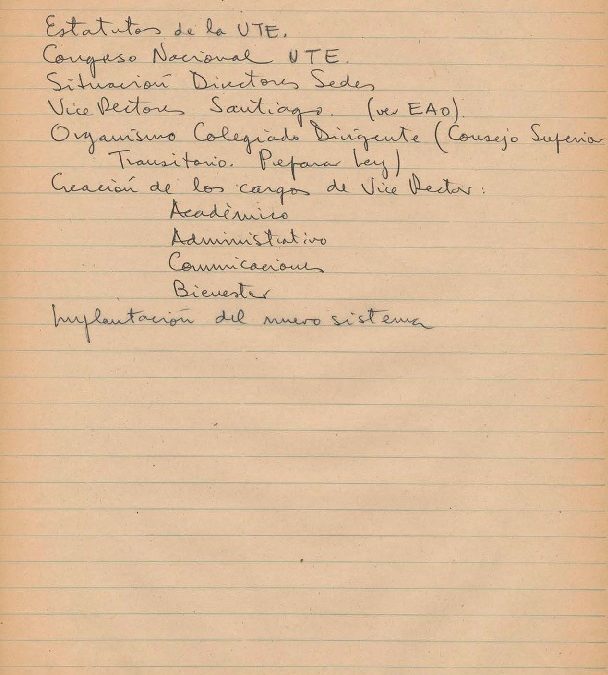 Estatutos de la UTE.
Congreso Nacional UTE.
Situación Directores Sedes
Vice Rectores Santiago. (ver EAO).
Organismo Colegiado Dirigente (Consejo Superior
Transitorio. Preparar Ley)
Creación de los cargos de Vice Rector:
Académico
Administrativo
Comunicaciones
Bienestar
Implantación del nuevo sistema